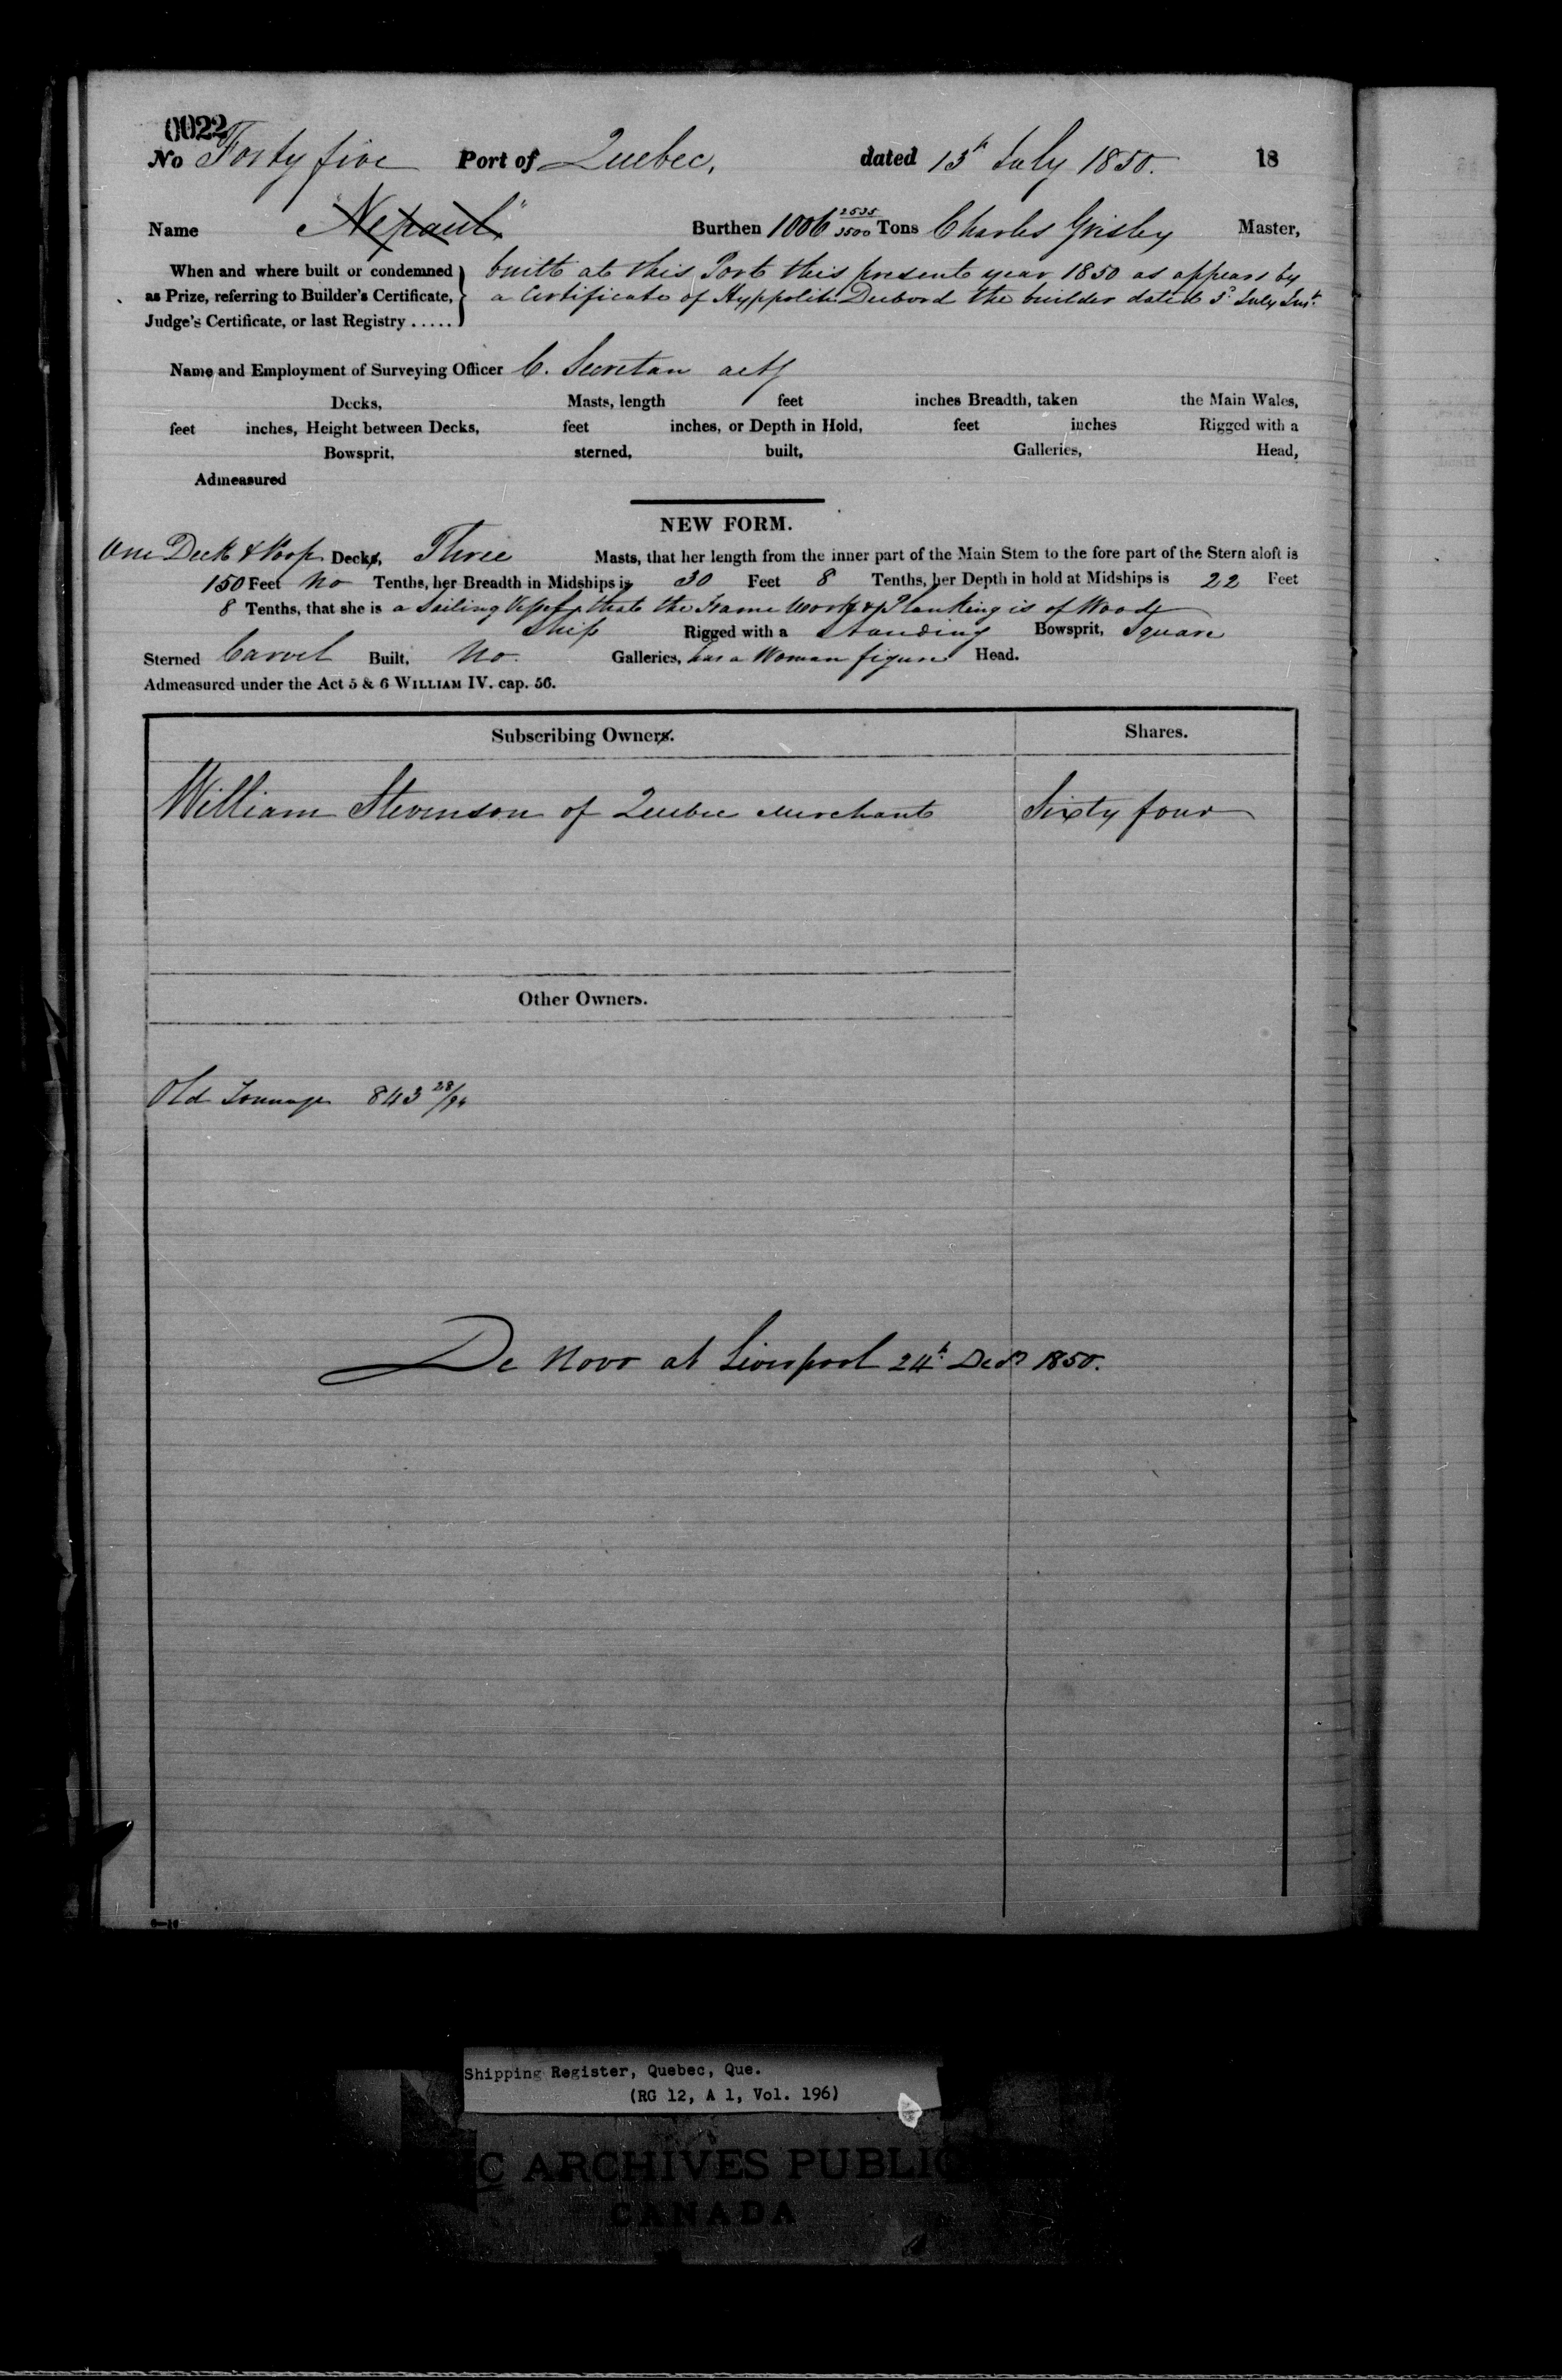 0022
No Forty five Port of Quebec, dated 13th July 1850. 18
Name "Nepaul" Burthen 1006 2535/3500 Tons Charles Grisley Master,
When and where built or condemned built at this Port this present year 1850 as appears by
as Prize, referring to Builder's Certificate, a Certificate of Hyppolite Dubord the builder dated 3d July Inst.
Judge's Certificate, or last Registry .....
Name and Employment of Surveying Officer C. Secretan actg
Decks, Masts, length feet inches Breadth, taken the Main Wales,
feet inches, Height between Decks, feet inches, or Depth in Hold, feet inches Rigged with a
Bowsprit, sterned, built, Galleries, Head,
Admeasured
NEW FORM.
One Deck & Poop Decks, Three Masts, that her length from the inner part of the Main Stem to the fore part of the Stern aloft is
150 Feet no Tenths, her Breadth in Midships is 30 Feet 8 Tenths, her Depth in hold at Midships is 22 Feet
8 Tenths, that she is a Sailing Vessel, that the Frame Work & Planking is of Wood
Ship Rigged with a Standing Bowsprit, Square
Sterned Carvel Built, No Galleries, has a Woman figure Head.
Admeasured under the Act 5 & 6 WILLIAM IV. cap. 56.
Subscribing Owners. Shares.
William Stevenson of Quebec Merchant Sixty four
Other Owners.
Old Tonnage 843 28/94
De Novo at Liverpool 24th Decr 1850.
Shipping Register, Quebec, Que.
(RG 12, A 1, Vol. 196)
C ARCHIVES PUBLIC
CANADA